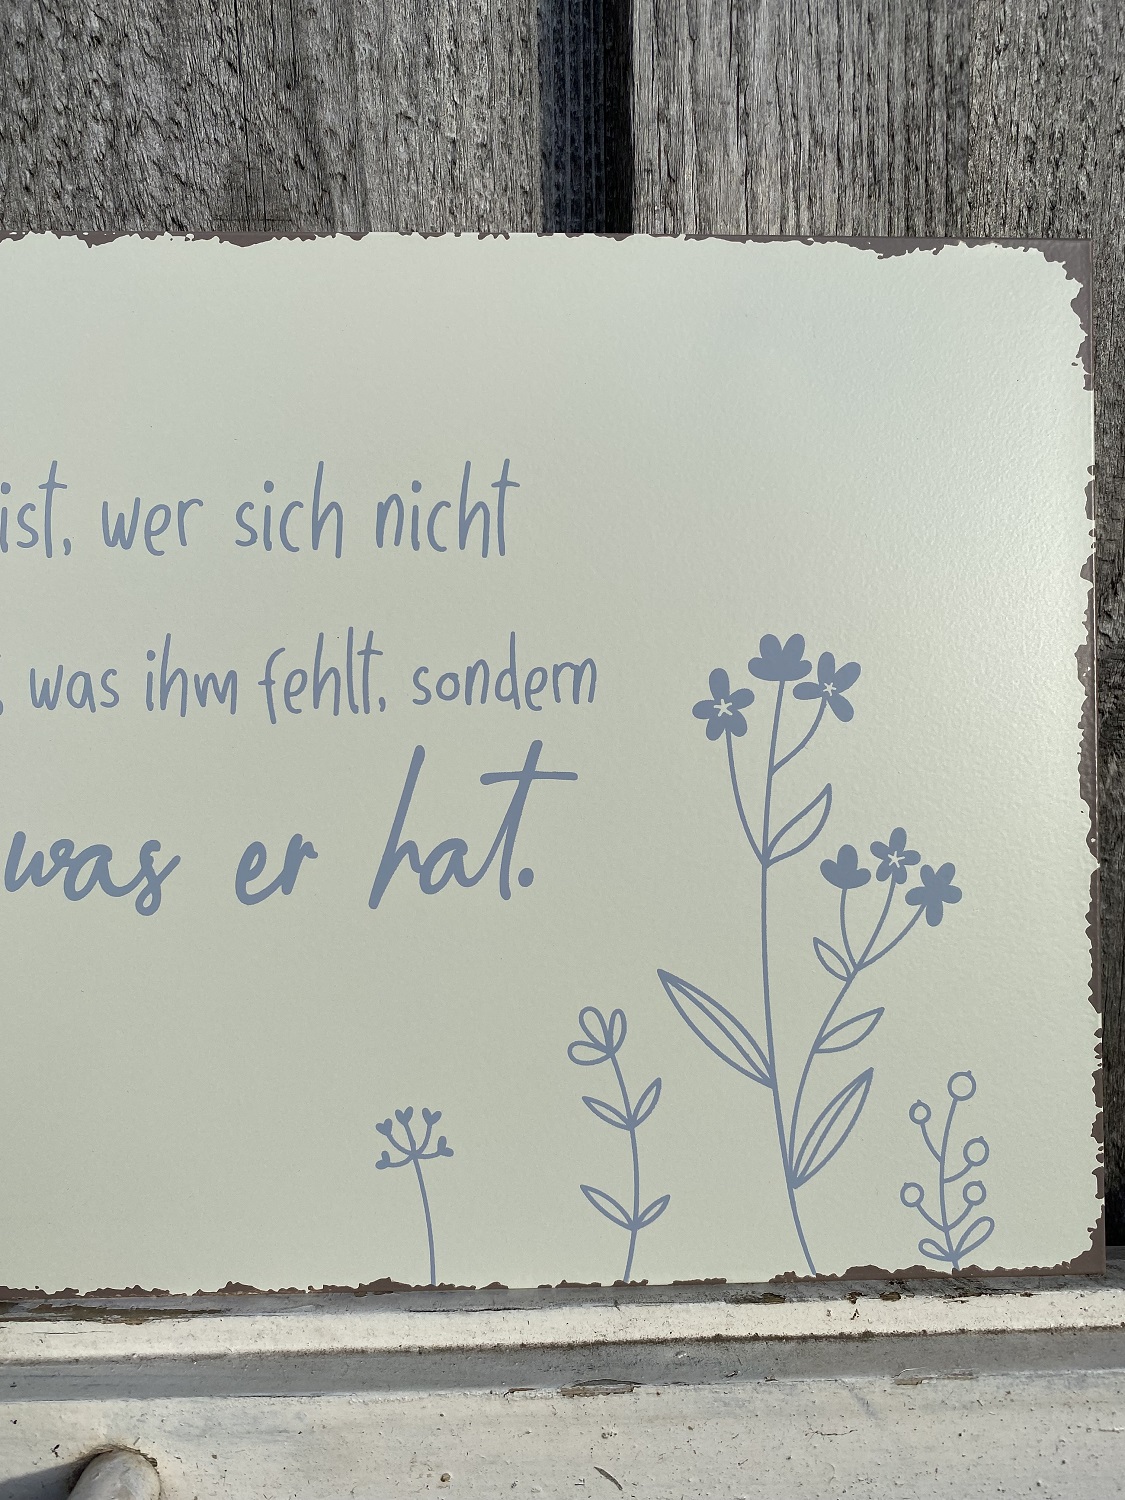 ist, wer sich nicht
, was ihm fehlt, sondern
was er hat.